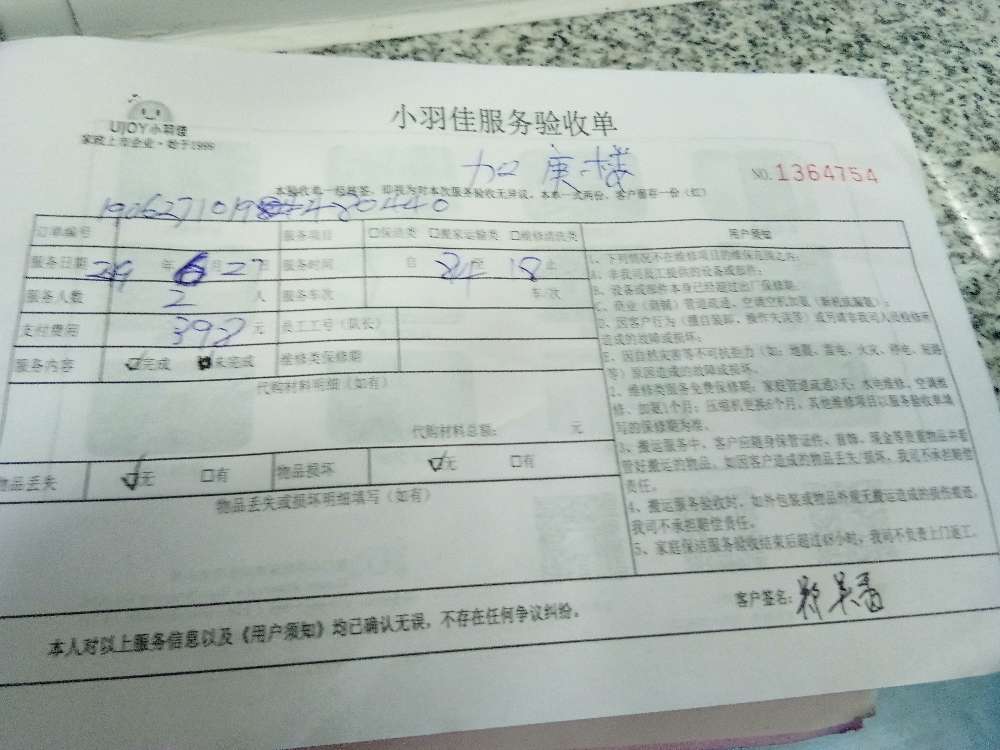 UJOY小羽佳
家政上市企业·始于1999
小羽佳服务验收单
NO. 1364754
本验收单一经签签，即视为对本次服务验收无异议。本单一式两份，客户留存一份（红）
订单编号 服务项目 □保洁类 □搬家运输类 □维修清洗类 用户须知
服务日期 年 6 月 27 日 服务时间 自 至 18 止
服务人数 2 人 服务车次 车/次
支付费用 392 元 员工工号（队长）
服务内容 完成 未完成 维修类保修期
代购材料明细（如有）
代购材料总额： 元
物品丢失 无 □有 物品损坏 无 □有
物品丢失或损坏明细填写（如有）
1、下列情况不在维修项目的维保范围之内：
A、非我司员工提供的设备或部件；
B、设备或部件本身已经超过出厂保修期；
C、商业（商铺）管道疏通、空调空机加氨
D、因客户行为（擅自装卸、操作失误等）或另请非我司人员检修所
造成的故障或损坏；
E、因自然灾害等不可抗拒力（如：地震、雷电、火灾、停电、短路
等）原因造成的故障或损坏。
2、维修类服务免费保修期：家庭管道疏通3天；水电维修、空调维
修、加氨1个月；压缩机更换6个月。其他维修项目以服务验收单填
写的保修期为准。
3、搬运服务中，客户应随身保管证件、首饰、现金等贵重物品并看
管好搬运的物品，如因客户造成的物品丢失/损坏，我司不承担赔偿
责任。
4、搬运服务验收时，如外包装或物品外观无搬运造成的损伤痕迹，
我司不承担赔偿责任。
5、家庭保洁服务验收结束后超过48小时，我司不负责上门返工。
本人对以上服务信息以及《用户须知》均已确认无误，不存在任何争议纠纷。
客户签名：